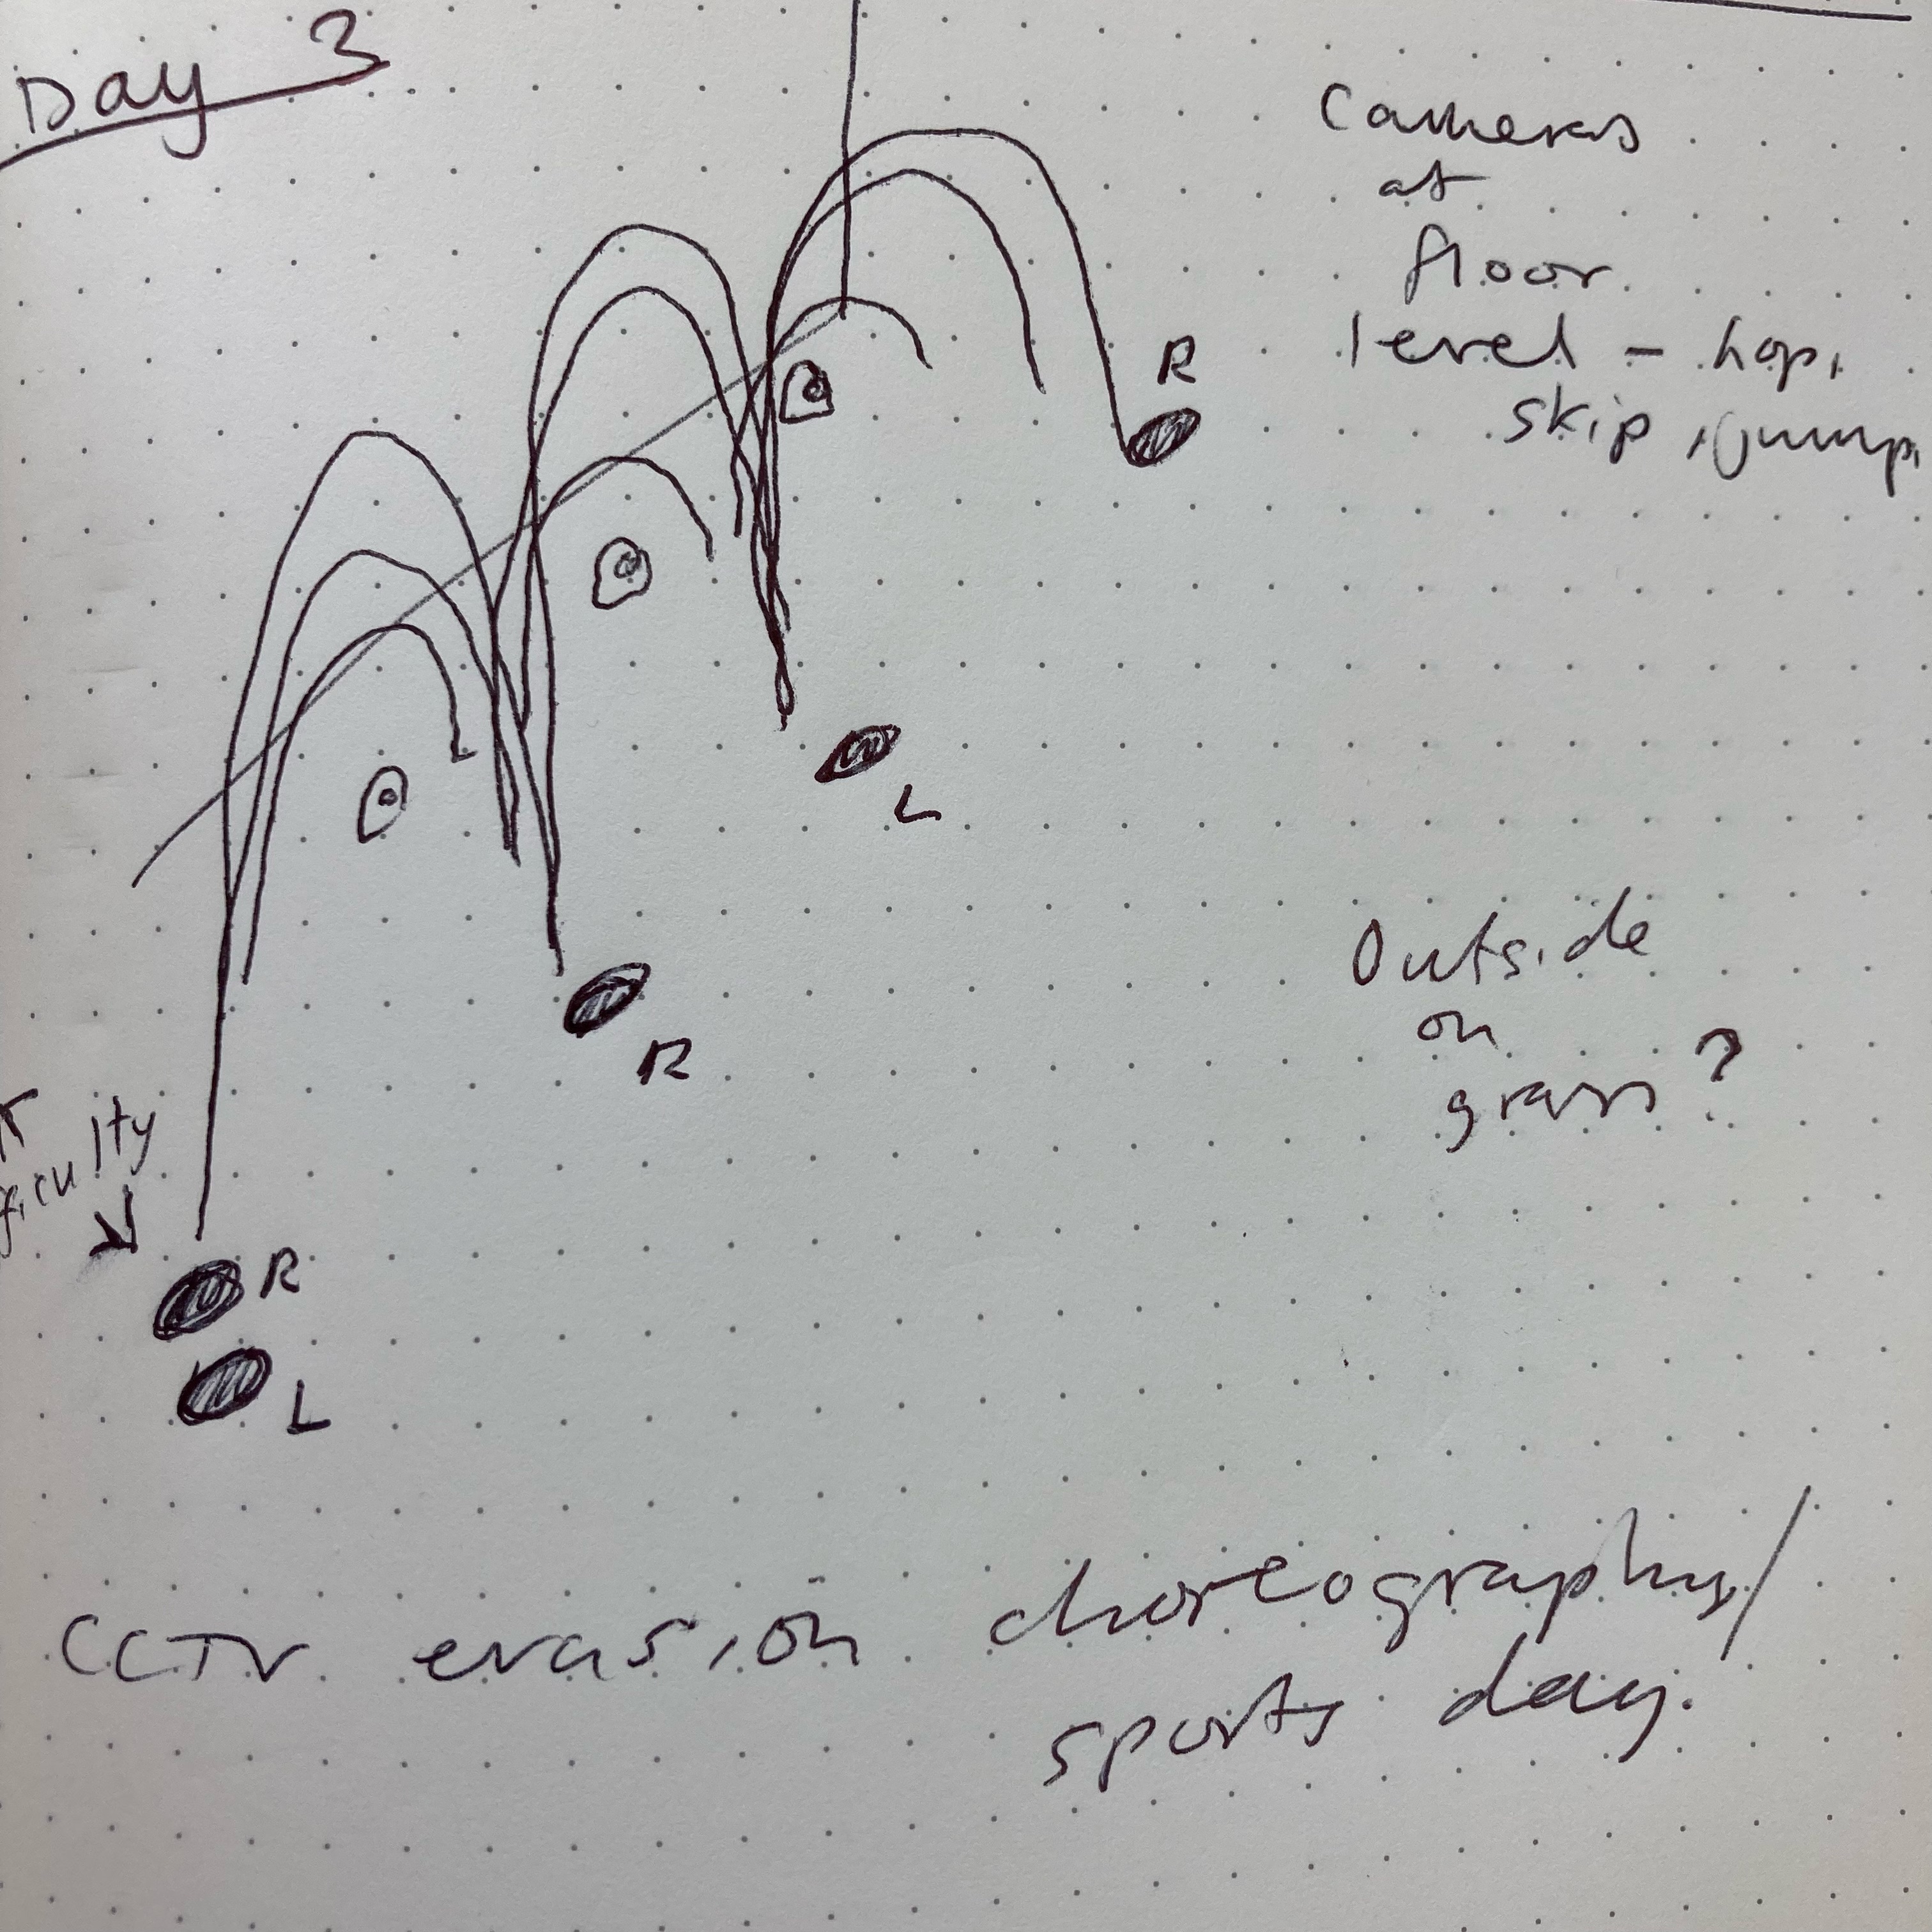 Day 3
Cameras
at
floor
level - hop,
skip, jump,
R
L
Outside
on
grass?
R
R
L
CCTV evasion choreography/
sports day.